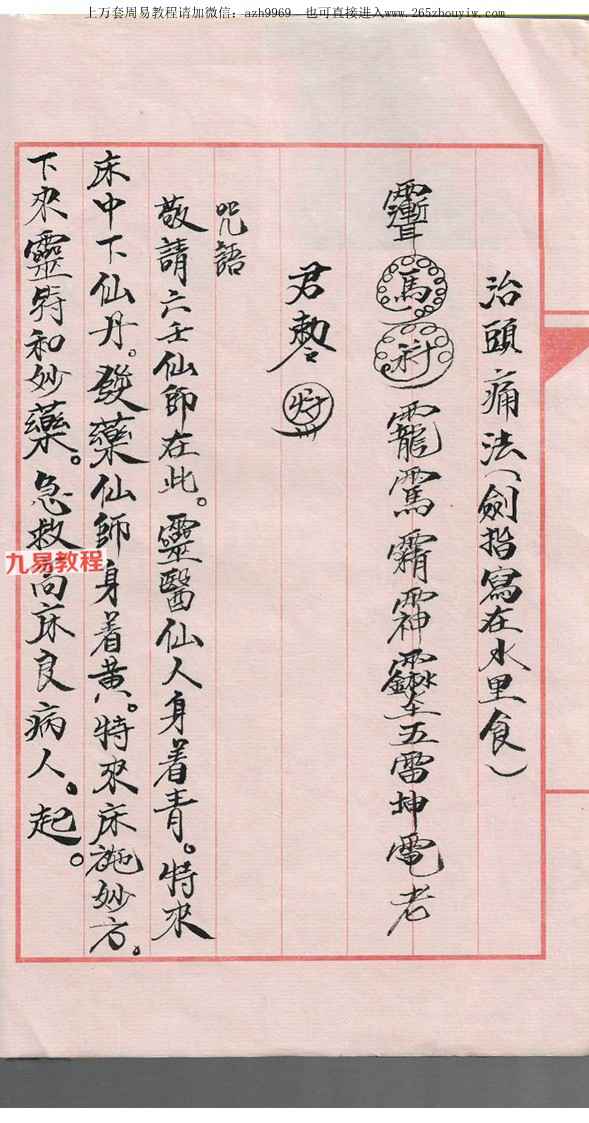 上万套周易教程请加微信：azh9969　也可直接进入www.265zhouyiw.com
治頭痛法（劍指寫在水里食）
馬
五雷坤電老
君
咒語
敬請六壬仙師在此。靈醫仙人身着青。特來
床中下仙丹。發藥仙師身着黄。特來床施妙方。
下來靈符和妙藥。急救高床良病人。起。
九易教程